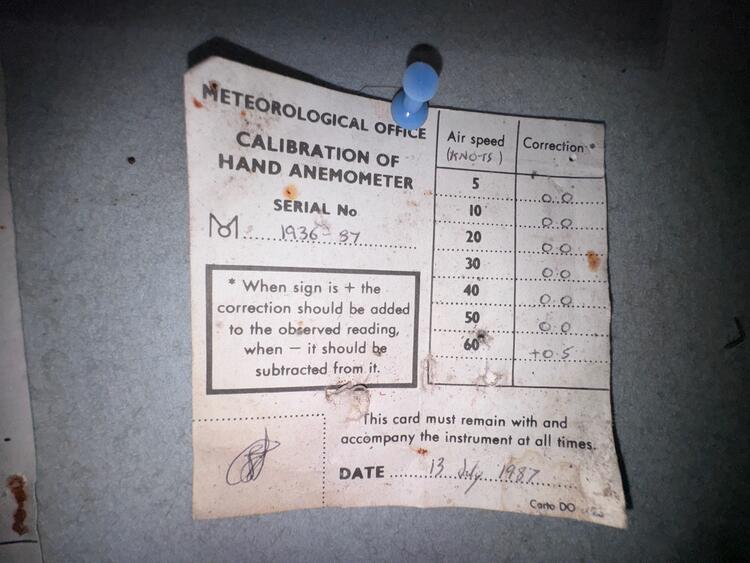 METEOROLOGICAL OFFICE
CALIBRATION OF
HAND ANEMOMETER
SERIAL No
1936-87
* When sign is + the
correction should be added
to the observed reading,
when – it should be
subtracted from it.
Air speed Correction *
(KNOTS)
5 0.0
10 0.0
20 0.0
30 0.0
40 0.0
50 0.0
60 +0.5
This card must remain with and
accompany the instrument at all times.
DATE 13 July 1987
Carto DO